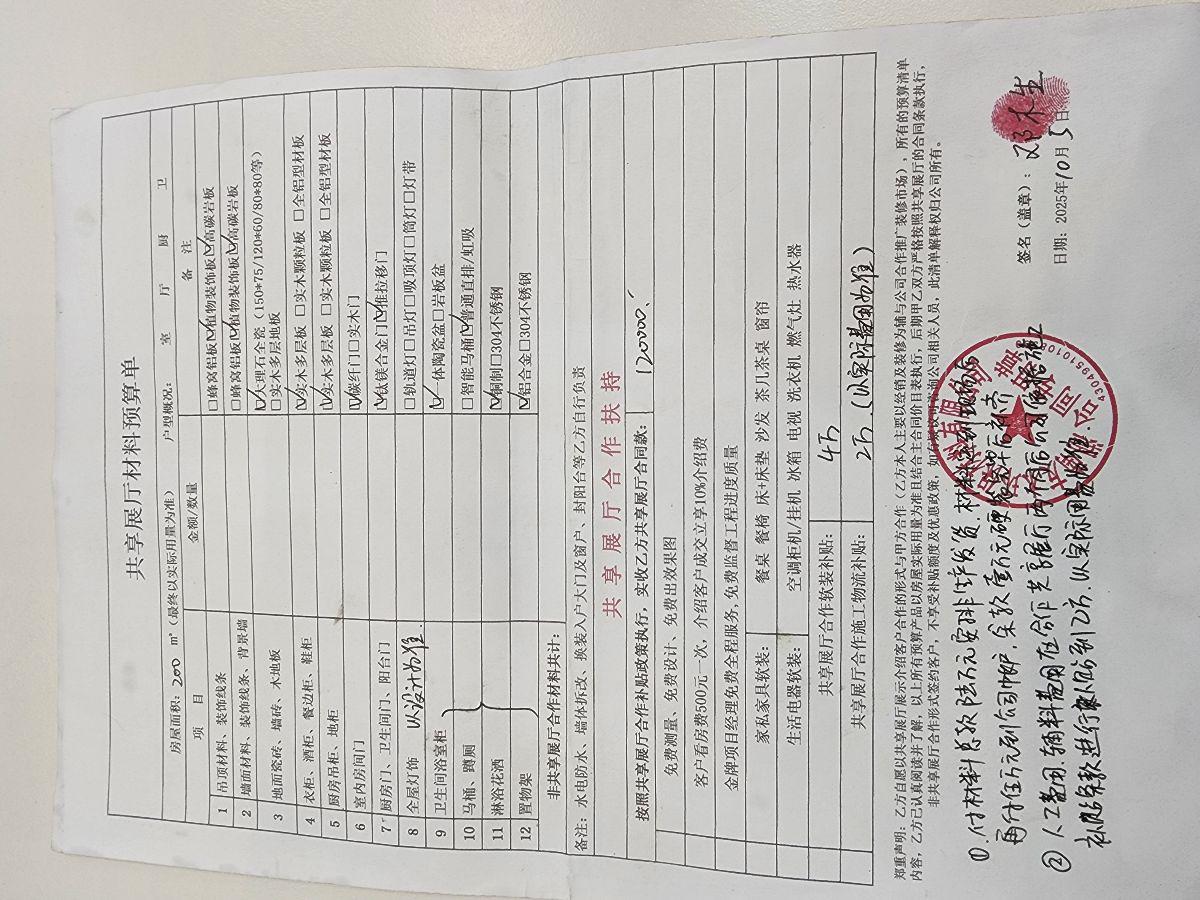 共享展厅材料预算单
房屋面积: 200 m² (最终以实际用量为准) 户型概况: 室 厅 厨 卫
项 目 金额/数量 备 注
1 吊顶材料、装饰线条 ☐蜂窝铝板☑植物装饰板☑高碳岩板
2 墙面材料、装饰线条、背景墙 ☐蜂窝铝板☑植物装饰板☑高碳岩板
3 地面瓷砖、墙砖、木地板 ☑大理石全瓷 (150*75/120*60/80*80等)
☐实木多层地板
4 衣柜、酒柜、餐边柜、鞋柜 ☑实木多层板 ☐实木颗粒板 ☐全铝型材板
5 厨房吊柜、地柜 ☑实木多层板 ☐实木颗粒板 ☐全铝型材板
6 室内房间门 ☑碳纤门☐实木门
7 厨房门、卫生间门、阳台门 ☑钛镁合金门☑推拉移门
8 全屋灯饰 以设计为准 ☐轨道灯☐吊灯☐吸顶灯☐筒灯☐灯带
9 卫生间浴室柜 ☑一体陶瓷盆☐岩板盆
10 马桶、蹲厕 ☐智能马桶☑普通直排/虹吸
11 淋浴花洒 ☑铜制☐304不锈钢
12 置物架 ☑铝合金☐304不锈钢
非共享展厅合作材料共计:
备注: 水电防水、墙体拆改、换装入户大门及窗户、封阳台等乙方自行负责
共享展厅合作扶持
按照共享展厅合作补贴政策执行, 实收乙方共享展厅合同款: 120000.
免费测量、免费设计、免费出效果图
客户看房费500元一次, 介绍客户成交立享10%介绍费
金牌项目经理免费全程服务, 免费监督工程进度质量
家私家具软装: 餐桌 餐椅 床+床垫 沙发 茶几茶桌 窗帘
生活电器软装: 空调柜机/挂机 冰箱 电视 洗衣机 燃气灶 热水器
共享展厅合作软装补贴: 4万
共享展厅合作施工物流补贴: 2万 (以实际费用为准)
郑重声明: 乙方自愿以共享展厅展示介绍客户合作的形式与甲方合作 (乙方本人主要以经销及装修为辅与公司合作推广装修市场), 所有的预算清单
内容, 乙方已认真阅读并了解, 以上所有预算产品以房屋实际用量为准且结合主合同价目表执行, 后期甲乙双方严格按照共享展厅的合同条款执行,
非共享展厅合作形式签约客户, 不享受补贴额度及优惠政策, 如有疑议可咨询公司相关人员, 此清单解释权归公司所有。
①. 付材料总款陆万元安排生产发货. 材料运到现场后
再付伍万元到公司帐户, 余款壹万元硬装完毕后补齐
② 人工费用. 辅料费用在合作共享展厅两个月后公司根据施工
补贴条款进行补贴到2万. 以实际用量为准
签名 (盖章): 邓木生
日期: 2025年10月5日
4304951010